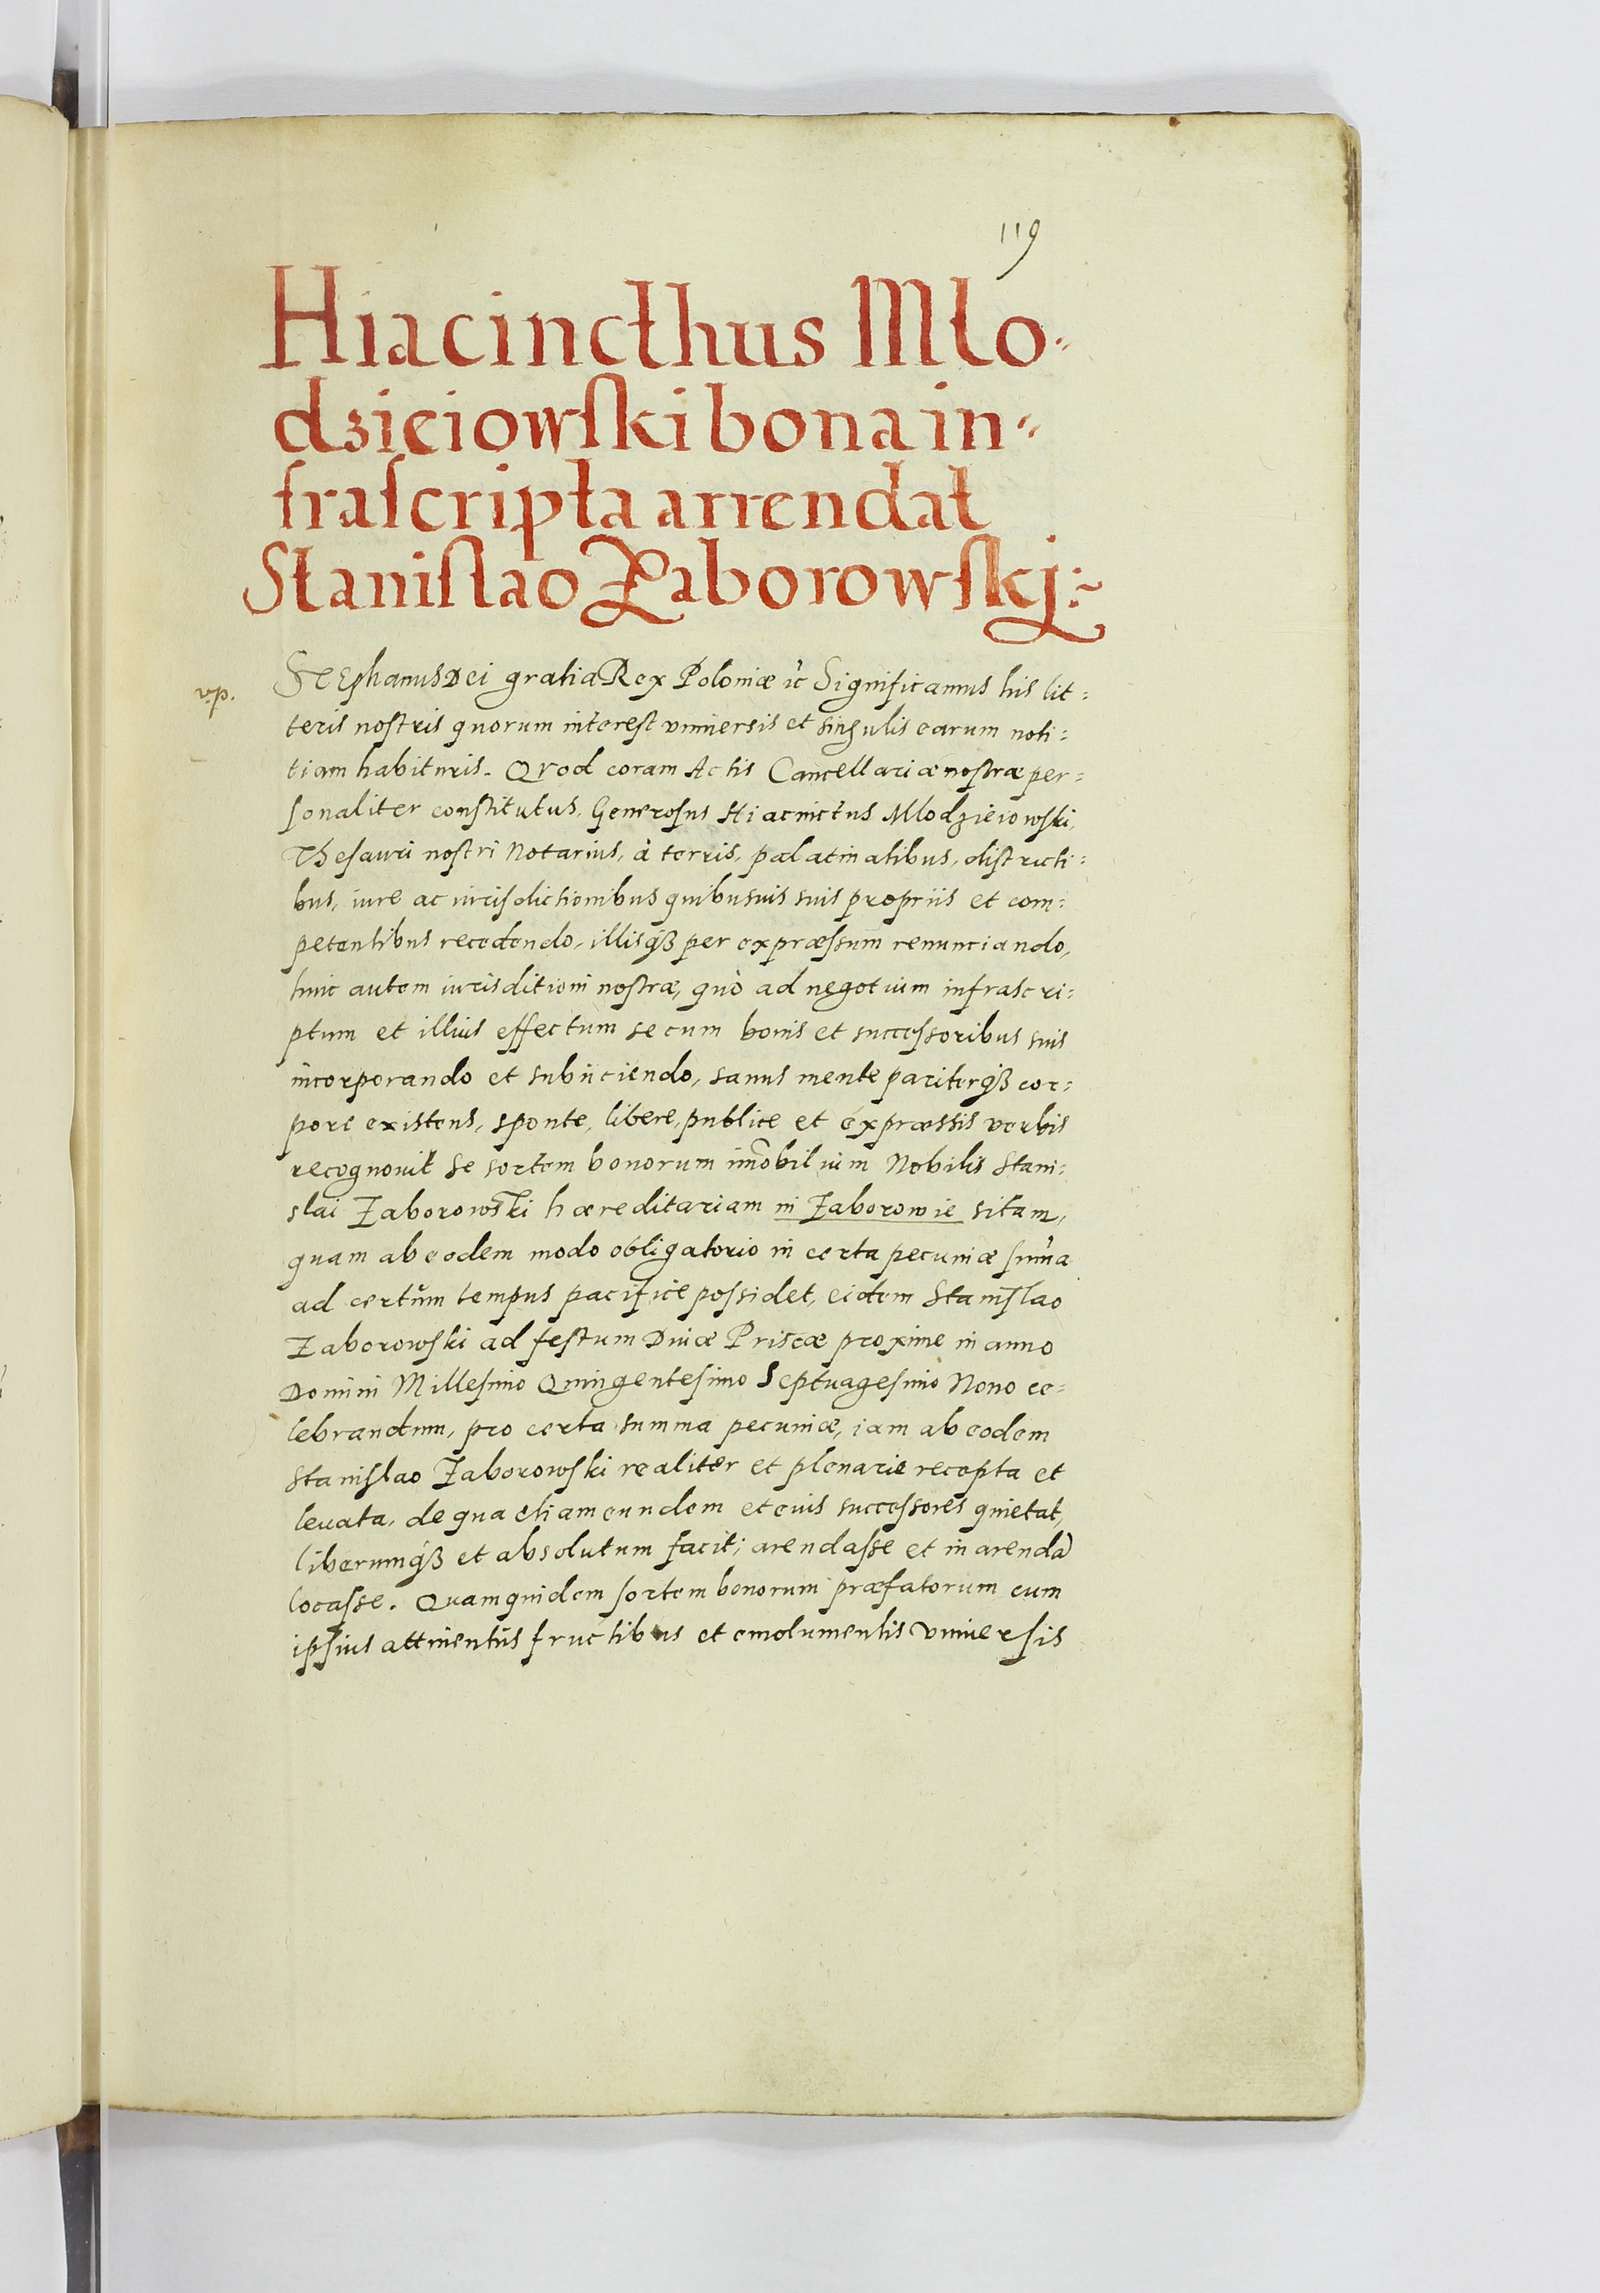 119
Hiacincthus Mlo-
dzieiowski bona in-
frascripta arrendat
Stanislao Zaborowskj:~
vp.
Stephanus Dei gratia Rex Poloniæ ɩc̃ Significamus his lit=
teris nostris quorum interest vniuersis et singulis earum noti=
tiam habituris. Quod coram Actis Cancellariæ nostræ per=
sonaliter constitutus, Generosus Hiacinctus Mlodzieiowski,
Thesauri nostri Notarius, à terris, palatinatibus, districti=
bus, iure ac iurisdictionibus quibusuis suis propriis et com=
petentibus recedendo, illisq́ꝫ per expræssum renunciando,
huic autem iurisditioni nostræ, quò ad negotium infrascri=
ptum et illius effectum se cum bonis et successoribus suis
incorporando et subiiciendo, sanus mente pariterq́ꝫ cor=
pore existens, sponte, libere, publice et expræssis verbis
recognouit se sortem bonorum im̃obilium Nobilis Stani=
slai Zaborowski hæreditariam in Zaborowie sitam,
quam ab eodem modo obligatorio in certa pecuniæ sum̃a
ad certum tempus pacifice possidet, eidem Stanislao
Zaborowski ad festum Diuæ Priscæ proxime in anno
Domini Millesimo Quingentesimo Septuagesimo Nono ce=
lebrandum, pro certa summa pecuniæ, iam ab eodem
Stanislao Zaborowski realiter et plenarie recepta et
leuata, de qua etiam eundem et eius successores quietat,
liberumq́ꝫ et absolutum facit; arendasse et in arendã
locasse. Quamquidem sortem bonorum præfatorum cum
ipsius attinentiis fructibus et emolumentis vniuersis